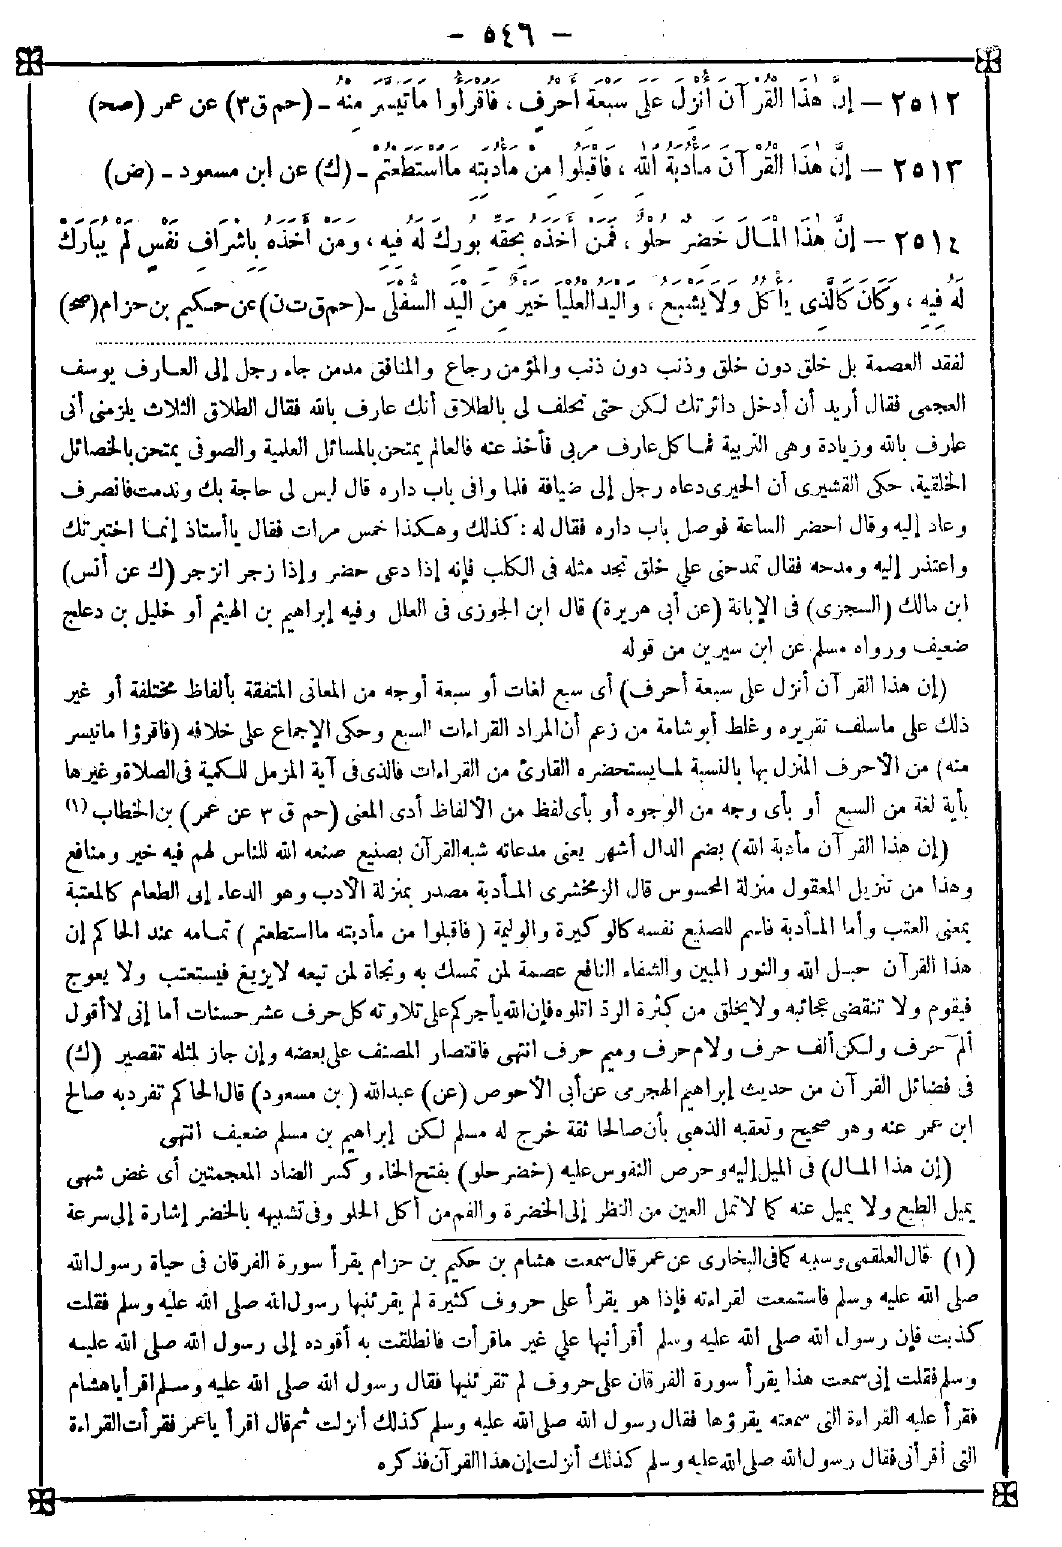 - ٥٤٦ -
٢٥١٢ - إِنَّ هٰذَا الْقُرْآنَ أُنْزِلَ عَلَى سَبْعَةِ أَحْرُفٍ ، فَاقْرَأُوا مَاتَيَسَّرَ مِنْهُ - (حم ق ٣) عن عمر (صح)
٢٥١٣ - إِنَّ هٰذَا الْقُرْآنَ مَأْدُبَةُ اللهِ ، فَاقْبَلُوا مِنْ مَأْدُبَتِهِ مَااسْتَطَعْتُمْ - (ك) عن ابن مسعود - (ض)
٢٥١٤ - إِنَّ هٰذَا الْمَالَ خَضِرٌ حُلْوٌ ، فَمَنْ أَخَذَهُ بِحَقِّهِ بُورِكَ لَهُ فِيهِ ، وَمَنْ أَخَذَهُ بِإِشْرَافِ نَفْسٍ لَمْ يُبَارَكْ
لَهُ فِيهِ ، وَكَانَ كَالَّذِى يَأْكُلُ وَلَا يَشْبَعُ ، وَالْيَدُ الْعُلْيَا خَيْرٌ مِنَ الْيَدِ السُّفْلَى - (حم ق ت ن) عن حكيم بن حزام (صح)
لفقد العصمة بل خلق دون خلق وذنب دون ذنب والمؤمن رجاع والمنافق مدمن جاء رجل إلى العارف يوسف
العجمى فقال أريد أن أدخل دائرتك لكن حتى تحلف لى بالطلاق أنك عارف بالله فقال الطلاق الثلاث يلزمنى أنى
عارف بالله وزيادة وهى التربية فما كل عارف مربى فأخذ عنه فالعالم يمتحن بالمسائل العلمية والصوفى يمتحن بالخصائل
الخلقية، حكى القشيرى أن الحيرى دعاه رجل إلى ضيافة فلما وافى باب داره قال ليس لى حاجة بك وندمت فانصرف
وعاد إليه وقال احضر الساعة فوصل باب داره فقال له : كذلك وهكذا خمس مرات فقال ياأستاذ إنما اختبرتك
واعتذر إليه ومدحه فقال تمدحنى على خلق تجد مثله فى الكلب فإنه إذا دعى حضر وإذا زجر انزجر (ك عن أنس)
ابن مالك (السجزى) فى الإبانة (عن أبى هريرة) قال ابن الجوزى فى العلل وفيه إبراهيم بن الهيثم أو خليل بن دعلج
ضعيف ورواه مسلم عن ابن سيرين من قوله
(إن هذا القرآن أنزل على سبعة أحرف) أى سبع لغات أو سبعة أوجه من المعانى المتفقة بألفاظ مختلفة أو غير
ذلك على ماسلف تقريره وغلط أبو شامة من زعم أن المراد القراءات السبع وحكى الإجماع على خلافه (فاقرؤا ماتيسر
منه) من الأحرف المنزل بها بالنسبة لما يستحضره القارئ من القراءات فالذى فى آية المزمل للكمية فى الصلاة وغيرها
بأية لغة من السبع أو بأى وجه من الوجوه أو بأى لفظ من الألفاظ أدى المعنى (حم ق ٣ عن عمر) بن الخطاب (١)
(إن هذا القرآن مأدبة الله) بضم الدال أشهر يعنى مدعاته شبه القرآن بصنيع صنعه الله للناس لهم فيه خير ومنافع
وهذا من تنزيل المعقول منزلة المحسوس قال الزمخشرى المأدبة مصدر بمنزلة الأدب وهو الدعاء إلى الطعام كالمعتبة
بمعنى العتب وأما المأدبة فاسم للصنيع نفسه كالوكيرة والوليمة (فاقبلوا من مأدبته مااستطعتم) تمامه عند الحاكم إن
هذا القرآن حبل الله والنور المبين والشفاء النافع عصمة لمن تمسك به ونجاة لمن تبعه لايزيغ فيستعتب ولا يعوج
فيقوم ولا تنقضى عجائبه ولا يخلق من كثرة الرد اتلوه فإن الله يأجركم على تلاوته كل حرف عشر حسنات أما إنى لا أقول
ألم حرف ولكن ألف حرف ولام حرف وميم حرف انتهى فاقتصار المصنف على بعضه وإن جاز لمثله تقصير (ك)
فى فضائل القرآن من حديث إبراهيم الهجرى عن أبى الأحوص (عن) عبدالله (بن مسعود) قال الحاكم تفرد به صالح
ابن عمر عنه وهو صحيح وتعقبه الذهبى بأن صالحا ثقة خرج له مسلم لكن إبراهيم بن مسلم ضعيف انتهى
(إن هذا المال) فى الميل إليه وحرص النفوس عليه (خضر حلو) بفتح الخاء وكسر الضاد المعجمتين أى غض شهى
يميل الطبع ولا يميل عنه كما لا تمل العين من النظر إلى الخضرة والفم من أكل الحلو وفى تشبيهه بالخضر إشارة إلى سرعة
(١) قال العلقمى وسببه كما فى البخارى عن عمر قال سمعت هشام بن حكيم بن حزام يقرأ سورة الفرقان فى حياة رسول الله
صلى الله عليه وسلم فاستمعت لقراءته فإذا هو يقرأ على حروف كثيرة لم يقرئنيها رسول الله صلى الله عليه وسلم فقلت
كذبت فإن رسول الله صلى الله عليه وسلم أقرأنيها على غير ماقرأت فانطلقت به أقوده إلى رسول الله صلى الله عليه
وسلم فقلت إنى سمعت هذا يقرأ سورة الفرقان على حروف لم تقرئنيها فقال رسول الله صلى الله عليه وسلم اقرأ ياهشام
فقرأ عليه القراءة التى سمعته يقرؤها فقال رسول الله صلى الله عليه وسلم كذلك أنزلت ثم قال اقرأ ياعمر فقرأت القراءة
التى أقرأنى فقال رسول الله صلى الله عليه وسلم كذلك أنزلت إن هذا القرآن فذكره